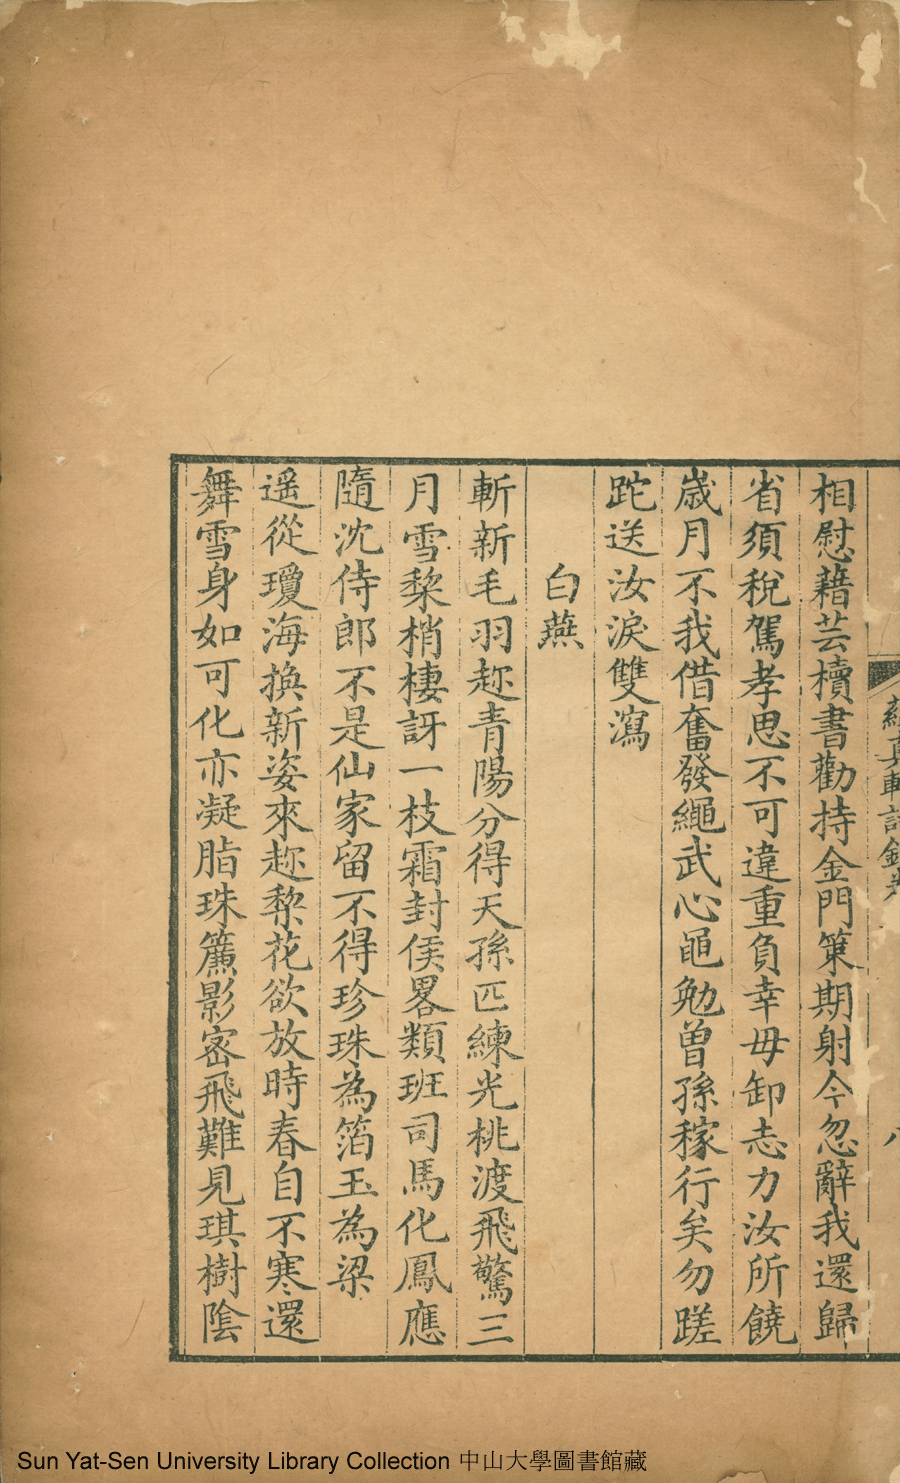 相慰藉芸櫝書勸持金門䇿期射今忽辭我還歸
省須稅駕孝思不可違重負幸毋卸志力汝所饒
歲月不我借奮發繩武心黽勉曾孫稼行矣勿蹉
跎送汝淚雙瀉
白燕
斬新毛羽趂青陽分得天孫匹練光桃渡飛驚三
月雪棃梢棲訝一枝霜封侯畧類班司馬化鳳應
隨沈侍郎不是仙家留不得珍珠為箔玉為梁
遥從瓊海換新姿來趂棃花欲放時春自不寒還
舞雪身如可化亦凝脂珠簾影密飛難見琪樹陰
真軒詩鈔
Sun Yat-Sen University Library Collection 中山大學圖書館藏